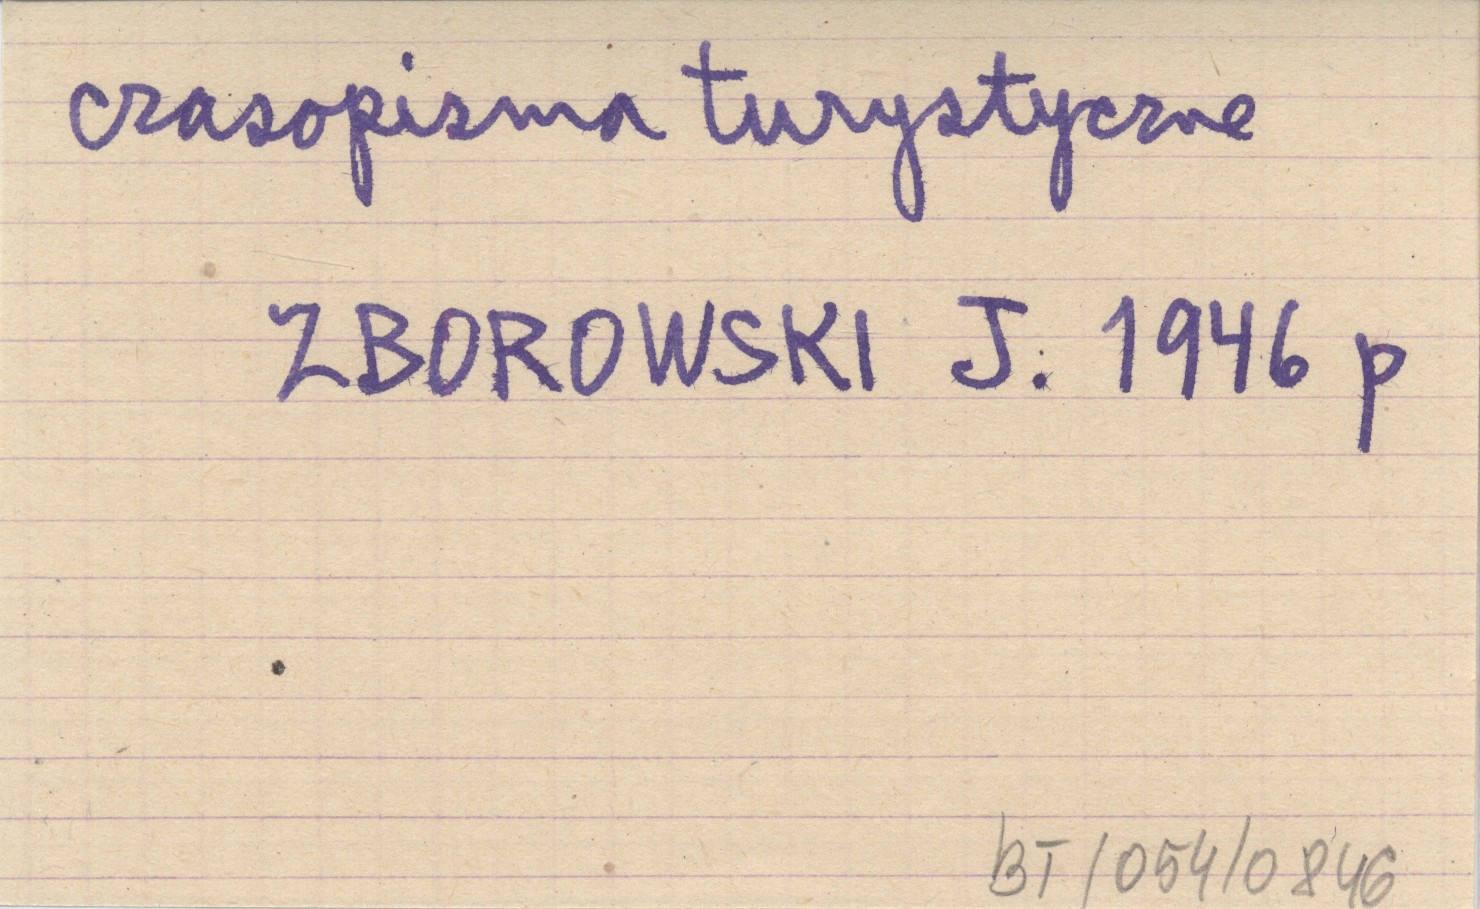 czasopisma turystyczne
ZBOROWSKI J. 1946 p
BT/054/0846